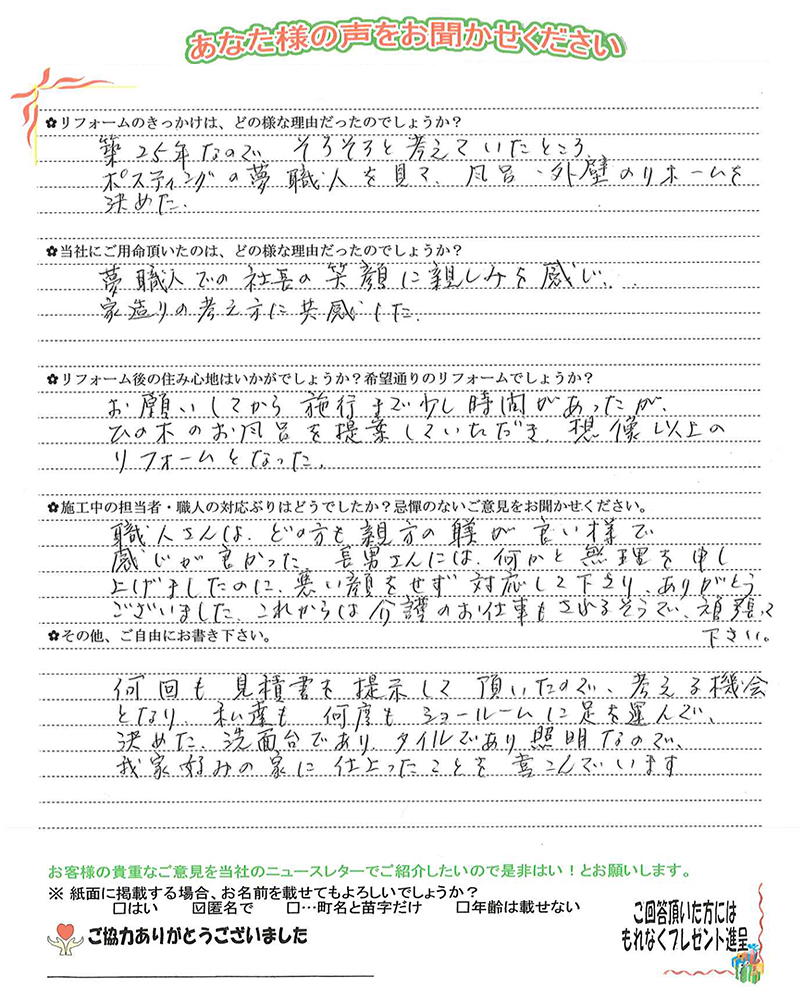 あなた様の声をお聞かせください
✿リフォームのきっかけは、どの様な理由だったのでしょうか?
築25年なので そろそろと考えていたところ
ポスティングの夢職人を見て、風呂・外壁のリホームを
決めた.
✿当社にご用命頂いたのは、どの様な理由だったのでしょうか?
夢職人での社長の笑顔に親しみを感じ、.
家造りの考え方に共感した.
✿リフォーム後の住み心地はいかがでしょうか?希望通りのリフォームでしょうか?
お願いしてから施行まで少し時間があったが、
ひの木のお風呂を提案していただき、想像以上の
リフォームとなった.
✿施工中の担当者・職人の対応ぶりはどうでしたか?忌憚のないご意見をお聞かせください。
職人さんは、どの方も親方の躾が良い様で
感じが良かった 長男さんには、何かと無理を申し
上げましたのに、悪い顔をせず対応して下さり、ありがとう
ございました、これからは介護のお仕事もされるそうで、頑張って
下さい。
✿その他、ご自由にお書き下さい。
何回も見積書を提示して頂いたので、考える機会
となり、私達も何度もショールームに足を運んで、
決めた、洗面台であり、タイルであり照明なので、
我家好みの家に仕上ったことを喜こんでいます
お客様の貴重なご意見を当社のニュースレターでご紹介したいので是非はい!とお願いします。
※ 紙面に掲載する場合、お名前を載せてもよろしいでしょうか?
□はい ☑匿名で □…町名と苗字だけ □年齢は載せない
ご協力ありがとうございました
ご回答頂いた方には
もれなくプレゼント進呈